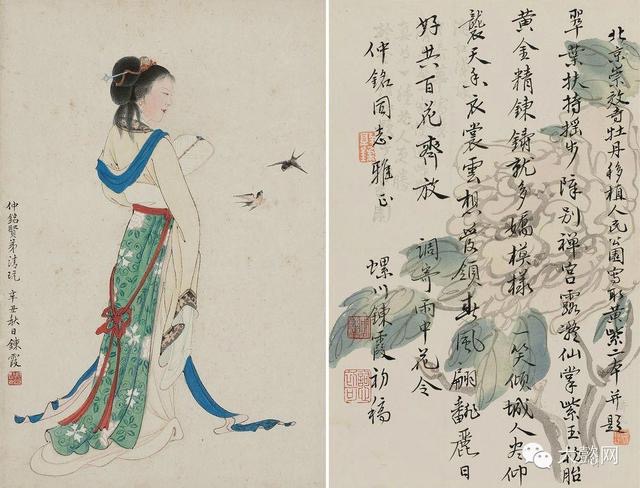 仲銘賢弟清玩 辛丑秋日 鍊霞
北京崇效寺牡丹移植人民公園寫取黃紫二本并題
翠葉扶持搖步障別禪宮露凝仙掌紫玉移胎
黃金精鍊鑄就多嬌模樣 一笑傾城人盡仰
襲天香衣裳雲想領春風翩翻麗日
好共百花齊放 調寄雨中花令
仲銘同志雅正 螺川鍊霞初稿
懿网